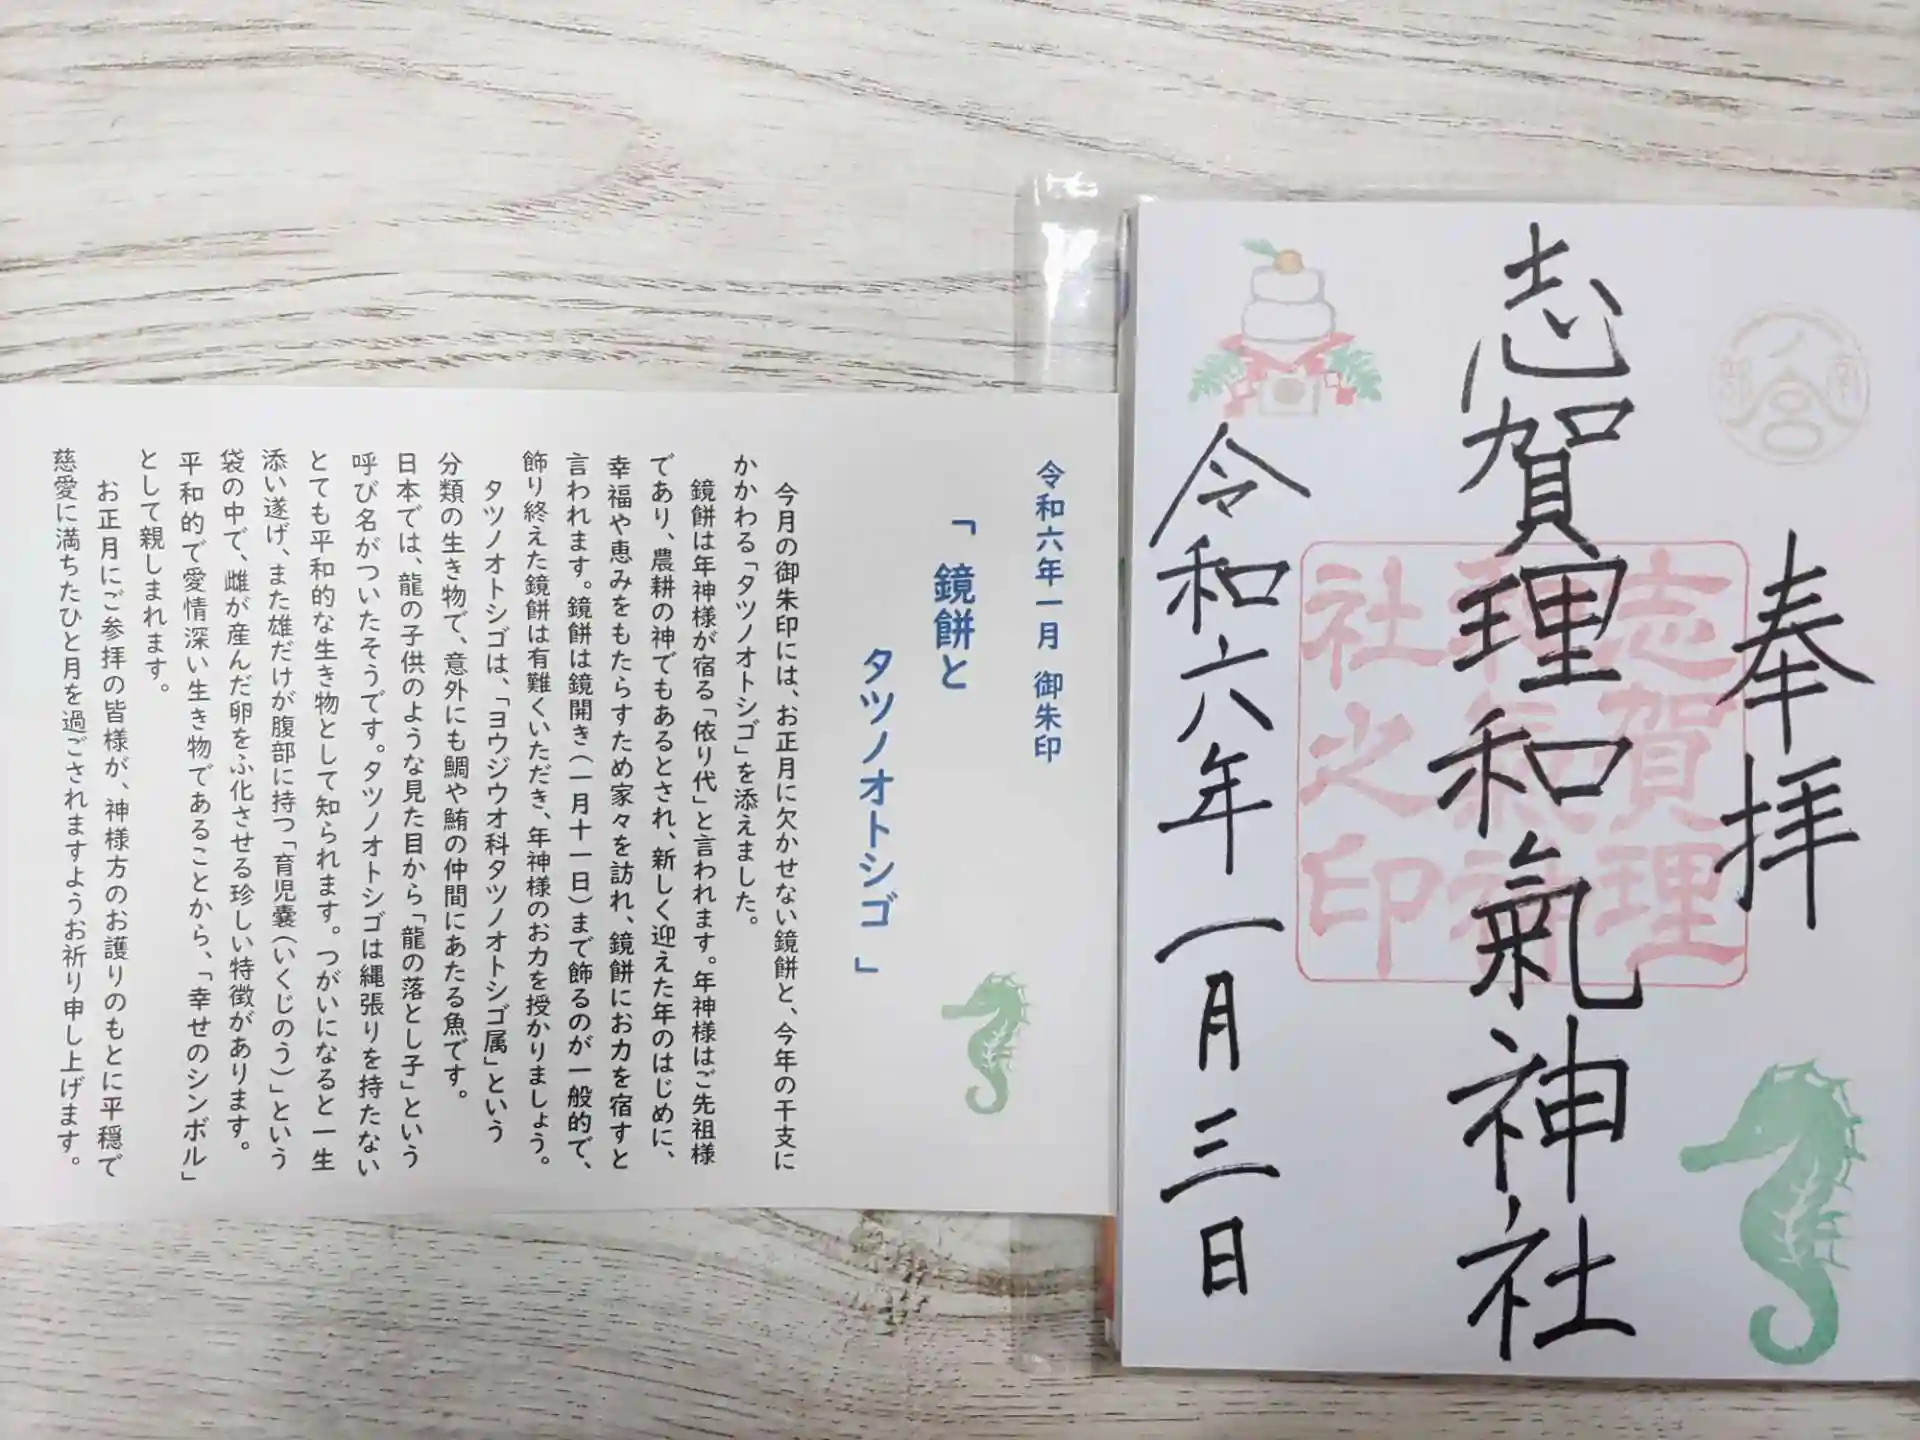 奉拝
志賀理和氣神社
令和六年一月三日
南部
ノ宮
志賀理
和氣神
社之印
令和六年一月 御朱印
「鏡餅と
タツノオトシゴ」
今月の御朱印には、お正月に欠かせない鏡餅と、今年の干支に
かかわる「タツノオトシゴ」を添えました。
鏡餅は年神様が宿る「依り代」と言われます。年神様はご先祖様
であり、農耕の神でもあるとされ、新しく迎えた年のはじめに、
幸福や恵みをもたらすため家々を訪れ、鏡餅にお力を宿すと
言われます。鏡餅は鏡開き(一月十一日)まで飾るのが一般的で、
飾り終えた鏡餅は有難くいただき、年神様のお力を授かりましょう。
タツノオトシゴは、「ヨウジウオ科タツノオトシゴ属」という
分類の生き物で、意外にも鯛や鮪の仲間にあたる魚です。
日本では、龍の子供のような見た目から「龍の落とし子」という
呼び名がついたそうです。タツノオトシゴは縄張りを持たない
とても平和的な生き物として知られます。つがいになると一生
添い遂げ、また雄だけが腹部に持つ「育児嚢(いくじのう)」という
袋の中で、雌が産んだ卵をふ化させる珍しい特徴があります。
平和的で愛情深い生き物であることから、「幸せのシンボル」
として親しまれます。
お正月にご参拝の皆様が、神様方のお護りのもとに平穏で
慈愛に満ちたひと月を過ごされますようお祈り申し上げます。